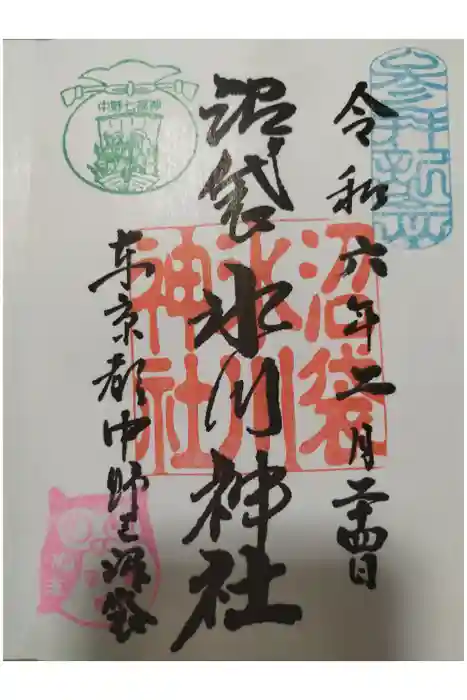 参拝記念
令和六年二月二十四日
沼袋氷川神社
沼袋
氷川
神社
中野七福神
東京都中野区沼袋